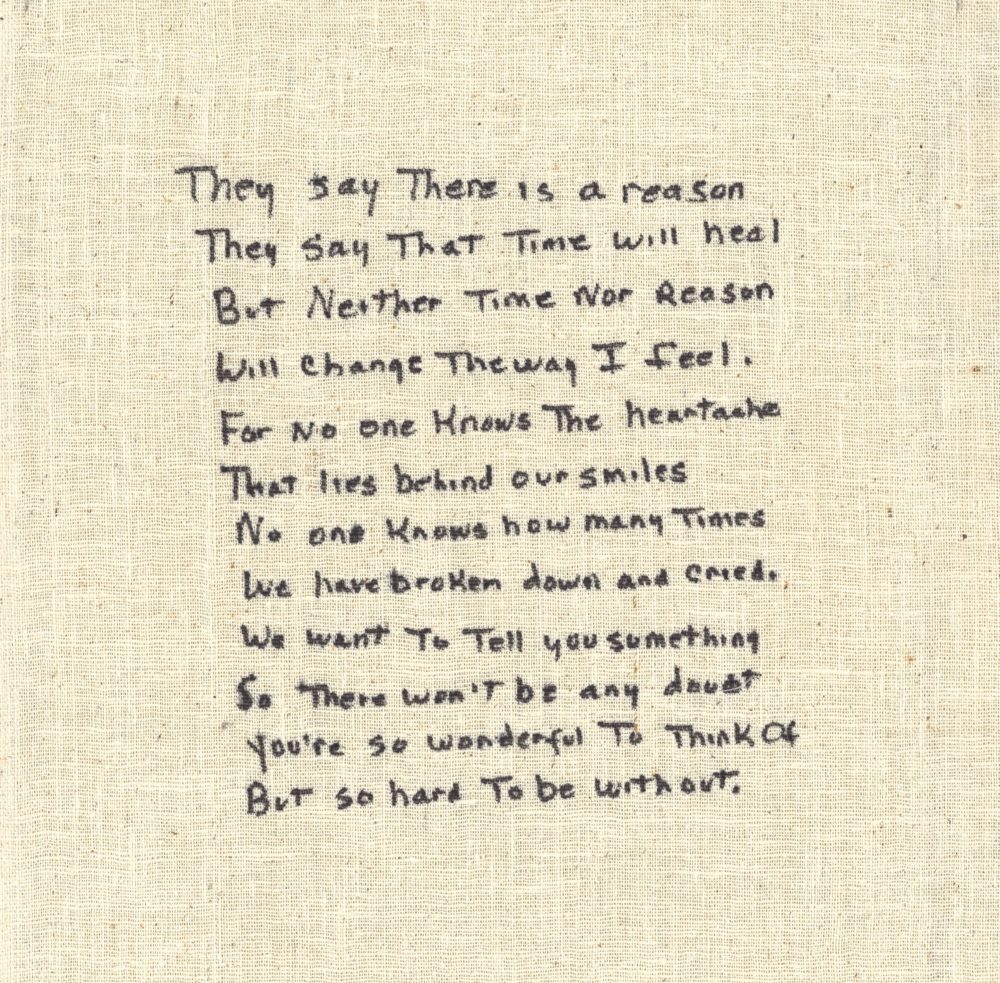 They say There is a reason
They say That Time will heal
But Neither Time Nor Reason
Will change The way I feel.
For No one Knows The heartache
That lies behind our smiles
No one Knows how many Times
We have broken down and cried.
We want To Tell you something
So There won't be any doubt
You're so wonderful To Think Of
But so hard To be without.